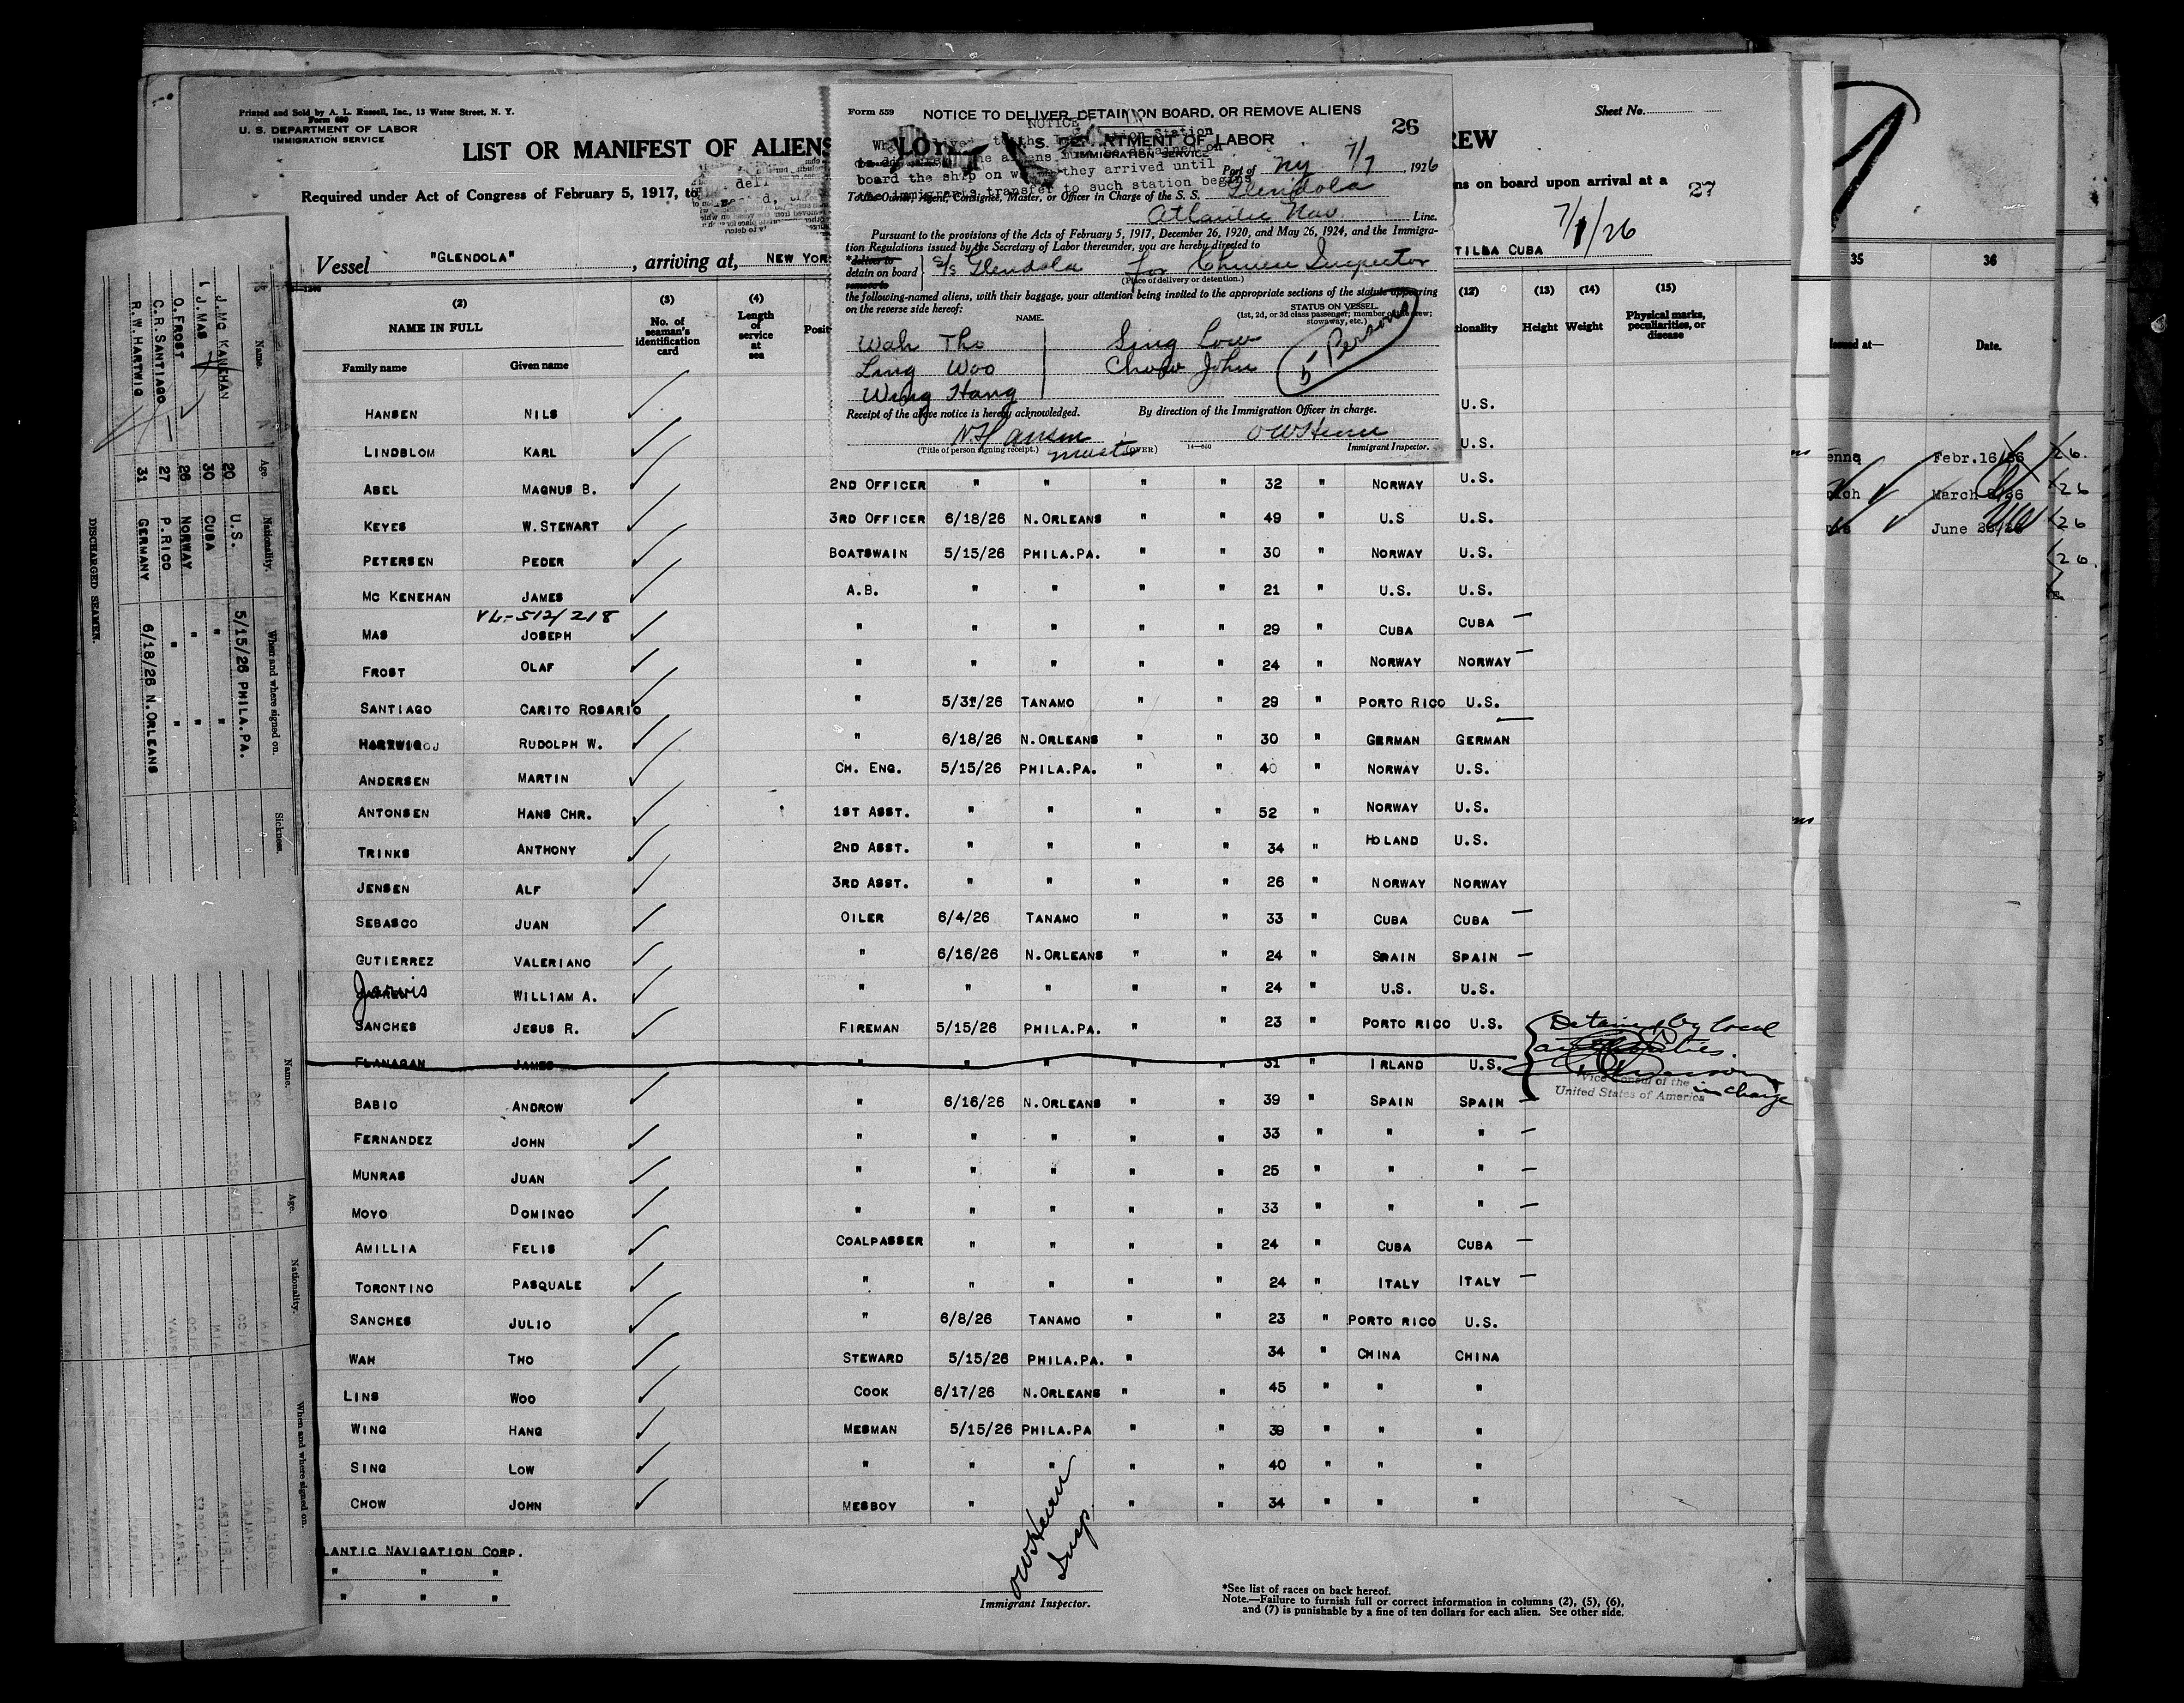 Printed and Sold by A. L. Russell, Inc., 13 Water Street, N. Y.
Form 680
U. S. DEPARTMENT OF LABOR
IMMIGRATION SERVICE
LIST OR MANIFEST OF ALIENS
Required under Act of Congress of February 5, 1917, to
Vessel "GLENDOLA", arriving at, NEW YOR
Form 559
NOTICE TO DELIVER, DETAIN ON BOARD, OR REMOVE ALIENS
26
NOTICE
U. S. DEPARTMENT OF LABOR
IMMIGRATION SERVICE
board the ship on they arrived until
immigrants transfer to such station begins
Port of NY 7/7, 1926
To the Owner, Agent, Consignee, Master, or Officer in Charge of the S. S. Glendola
Atlantic Nav Line.
Pursuant to the provisions of the Acts of February 5, 1917, December 26, 1920, and May 26, 1924, and the Immigra-
tion Regulations issued by the Secretary of Labor thereunder, you are hereby directed to
*deliver to
detain on board S/S Glendola for Chinese Inspector
remove to
(Place of delivery or detention.)
the following-named aliens, with their baggage, your attention being invited to the appropriate sections of the statute appearing
on the reverse side hereof:
NAME.
STATUS ON VESSEL.
(1st, 2d, or 3d class passenger; member of the crew;
stowaway, etc.)
Wah Tho Sing Low
Ling Woo Chow John
Wing Hang
5 Persons
Receipt of the above notice is hereby acknowledged. By direction of the Immigration Officer in charge.
N Hansen OW Heren
(Title of person signing receipt.) master (OVER) 14—640 Immigrant Inspector.
Sheet No.
REW
ns on board upon arrival at a
27
7/1/26
TILDA CUBA
(2) (3) (4) (12) (13) (14) (15)
NAME IN FULL
Family name Given name
No. of seaman's identification card
Length of service at sea
Posit
tionality
Height Weight
Physical marks, peculiarities, or disease
HANSEN NILS U.S.
LINDBLOM KARL U.S.
ABEL MAGNUS B. 2ND OFFICER " " " " 32 " NORWAY U.S.
KEYES W.STEWART 3RD OFFICER 6/18/26 N.ORLEANS " " 49 " U.S U.S.
PETERSEN PEDER BOATSWAIN 5/15/26 PHILA.PA. " " 30 " NORWAY U.S.
MC KENEHAN JAMES A.B. " " " " 21 " U.S. U.S.
VL-512/218
MAS JOSEPH " " " " " 29 " CUBA CUBA —
FROST OLAF " " " " " 24 " NORWAY NORWAY —
SANTIAGO CARITO ROSARIO " 5/31/26 TANAMO " " 29 " PORTO RICO U.S.
HARTWIG RUDOLPH W. " 6/18/26 N.ORLEANS " " 30 " GERMAN GERMAN —
ANDERSEN MARTIN CH. ENG. 5/15/26 PHILA.PA. " " 40 " NORWAY U.S.
ANTONSEN HANS CHR. 1ST ASST. " " " " 52 " NORWAY U.S.
TRINKS ANTHONY 2ND ASST. " " " " 34 " HOLAND U.S.
JENSEN ALF 3RD ASST. " " " " 26 " NORWAY NORWAY
SEBASCO JUAN OILER 6/4/26 TANAMO " " 33 " CUBA CUBA —
GUTIERREZ VALERIANO " 6/16/26 N.ORLEANS " " 24 " SPAIN SPAIN —
Jarvis WILLIAM A. " " " " " 24 " U.S. U.S.
SANCHES JESUS R. FIREMAN 5/15/26 PHILA.PA. " " 23 " PORTO RICO U.S.
FLANAGAN JAMES " " " " " 31 " IRLAND U.S.
Detained by local
authorities.
Vice Consul of the
United States of America in charge
BABIO ANDROW " 6/16/26 N.ORLEANS " " 39 " SPAIN SPAIN —
FERNANDEZ JOHN " " " " " 33 " " " —
MUNRAS JUAN " " " " " 25 " " " —
MOYO DOMINGO " " " " " 33 " " " —
AMILLIA FELIS COALPASSER " " " " 24 " CUBA CUBA —
TORONTINO PASQUALE " " " " " 24 " ITALY ITALY —
SANCHES JULIO " 6/8/26 TANAMO " " 23 " PORTO RICO U.S.
WAH THO STEWARD 5/15/26 PHILA.PA. " 34 " CHINA CHINA
LING WOO COOK 6/17/26 N.ORLEANS " " 45 " " "
WING HANG MESMAN 5/15/26 PHILA.PA " " 39 " " "
SING LOW " " " " " 40 " " "
CHOW JOHN MESBOY " " " 34 " " "
LANTIC NAVIGATION CORP.
" " "
" " "
OW Heren
Insp.
Immigrant Inspector.
*See list of races on back hereof.
Note.—Failure to furnish full or correct information in columns (2), (5), (6),
and (7) is punishable by a fine of ten dollars for each alien. See other side.
DISCHARGED SEAMEN.
Name. Age. Nationality. When and where signed on. Sickness.
J.MC KANEHAN 20 U.S. 5/15/26 PHILA.PA.
J.MAS 30 CUBA " "
O.FROST 26 NORWAY " "
C.R.SANTIAGO 27 P.RICO " "
R.W.HARTWIG 31 GERMANY 6/18/26 N.ORLEANS
Name. Age. Nationality. When and where signed on.
35 36
Issued at— Date.
Febr.16/26
March
June
26.
26
26
26.